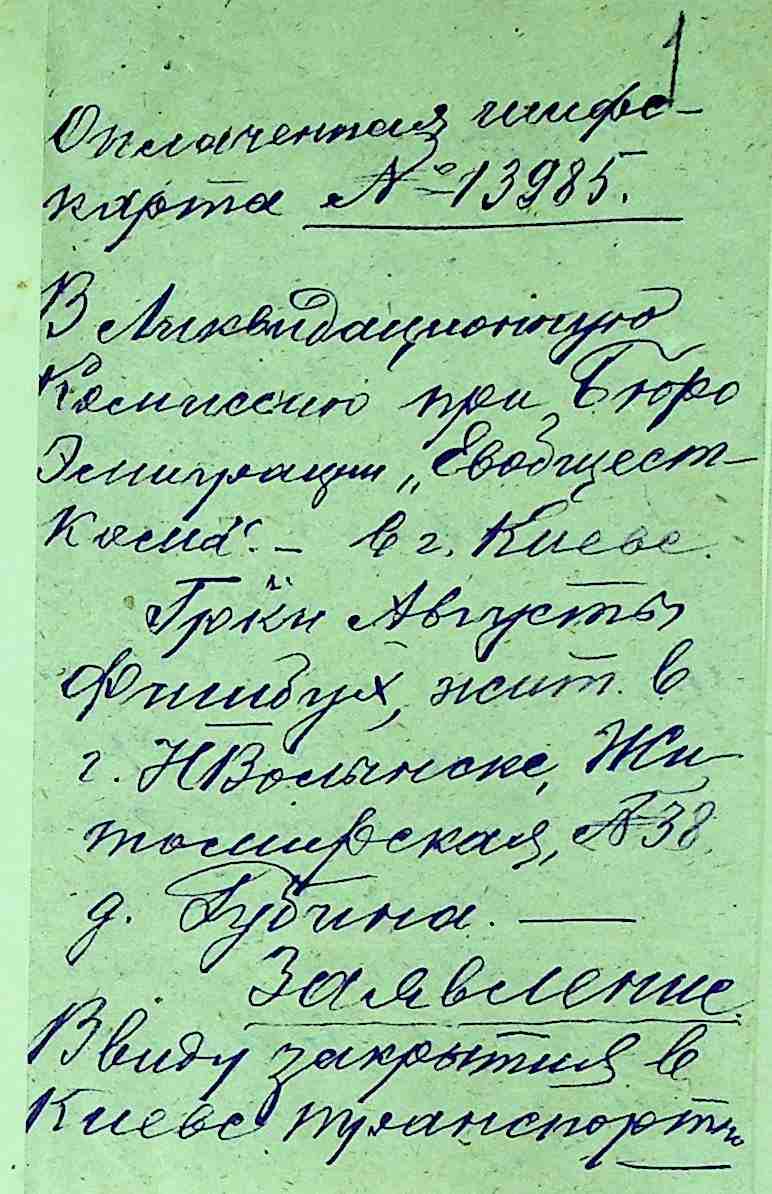 1
Оплаченная шифс-
карта № 13985.
В Ликвидационную
Комиссию при Бюро
Эмиграции „Евобщест-
кома“. – в г. Киеве.
Гр-ки Августы
Фишбух, жит. в
г. НВолынске, Жи-
томирская, № 38
д. Губина. —
Заявление.
Ввиду закрытия в
Киеве транспортн